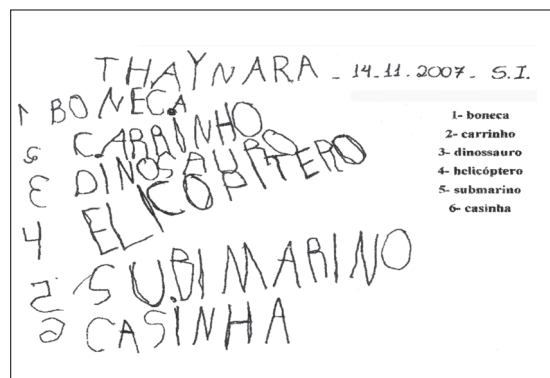 THAYNARA - 14-11-2007- S.I.
1 BONECA
2 CARRINHO
3 DINOSAURO
4 ELICOPITERO
5 SUBIMARINO
6 CASINHA
1- boneca
2- carrinho
3- dinossauro
4- helicóptero
5- submarino
6- casinha